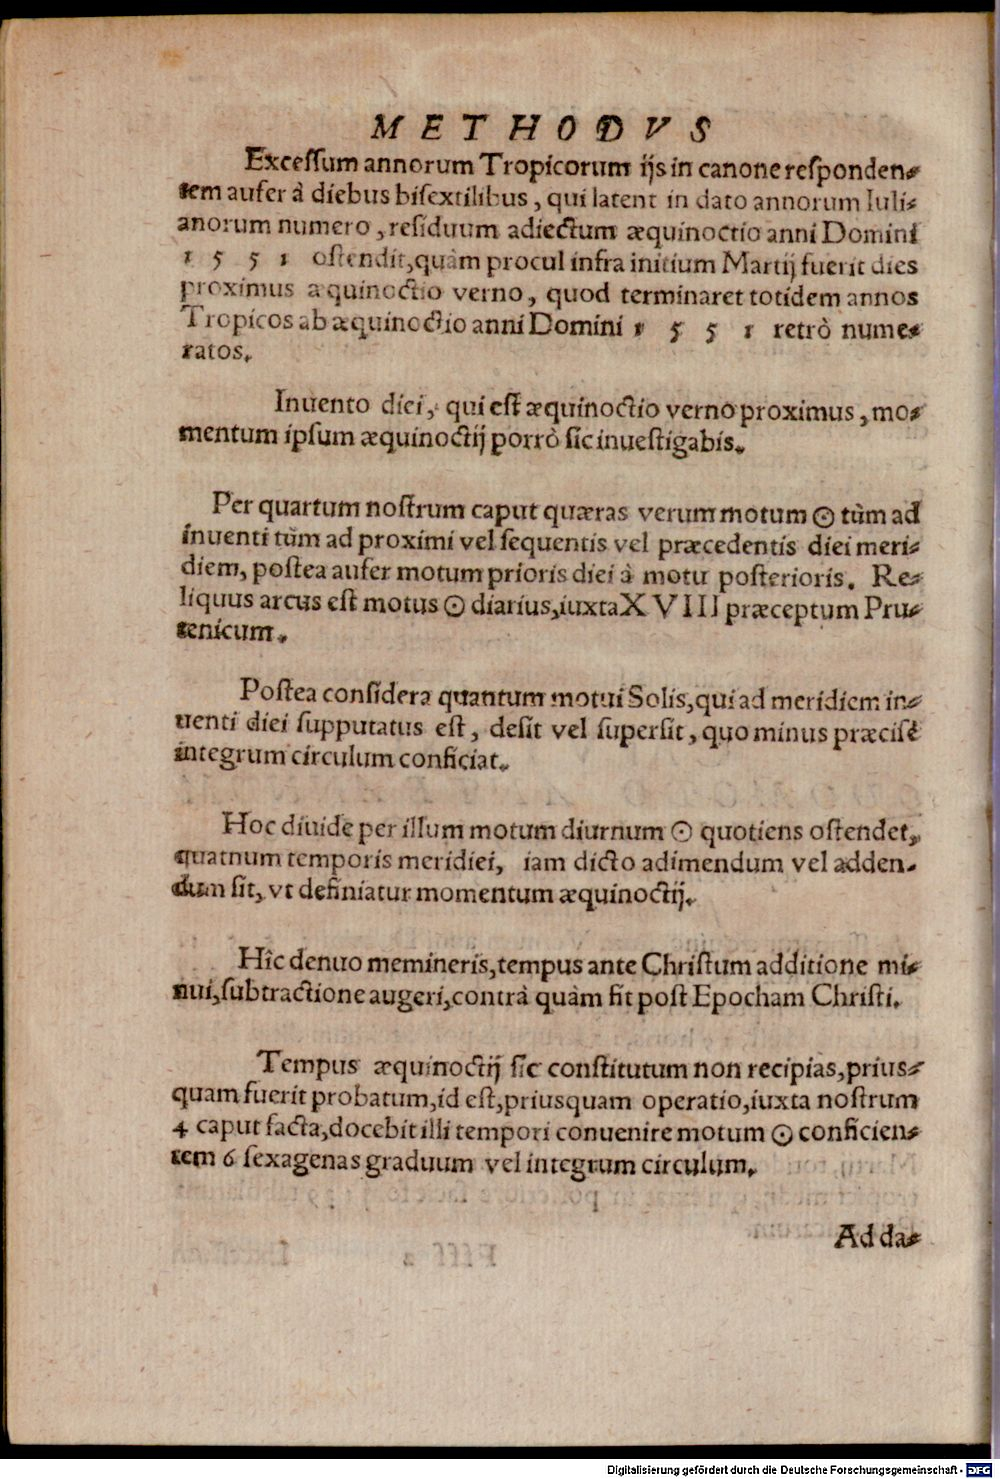 METHODVS
Exceſſum annorum Tropicorum ijs in canone reſponden-
tem aufer à diebus biſextilibus, qui latent in dato annorum Iuli-
anorum numero, reſiduum adiectum æquinoctio anni Domini
1551 oſtendit, quàm procul infra initium Martij fuerit dies
proximus æquinoctio verno, quod terminaret totidem annos
Tropicos ab æquinoctio anni Domini 1551 retrò nume-
ratos.
Inuento diei, qui eſt æquinoctio verno proximus, mo-
mentum ipſum æquinoctij porrò ſic inueſtigabis.
Per quartum noſtrum caput quæras verum motum ☉ tùm ad
inuenti tùm ad proximi vel ſequentis vel præcedentis diei meri-
diem, poſtea aufer motum prioris diei à motu poſterioris. Re-
liquus arcus eſt motus ☉ diarius, iuxta XVIII præceptum Pru-
tenicum.
Poſtea conſidera quantum motui Solis, qui ad meridiem in-
uenti diei ſupputatus eſt, deſit vel ſuperſit, quo minus præciſè
integrum circulum conficiat.
Hoc diuide per illum motum diurnum ☉ quotiens oſtendet,
quatnum temporis meridiei, iam dicto adimendum vel adden-
dum ſit, vt definiatur momentum æquinoctij.
Hîc denuo memineris, tempus ante Chriſtum additione mi-
nui, ſubtractione augeri, contrà quàm fit poſt Epocham Chriſti.
Tempus æquinoctij ſic conſtitutum non recipias, prius-
quam fuerit probatum, id eſt, priusquam operatio, iuxta noſtrum
4 caput facta, docebit illi tempori conuenire motum ☉ conficien-
tem 6 ſexagenas graduum vel integrum circulum.
Ad da-
Digitalisierung gefördert durch die Deutsche Forschungsgemeinschaft - DFG